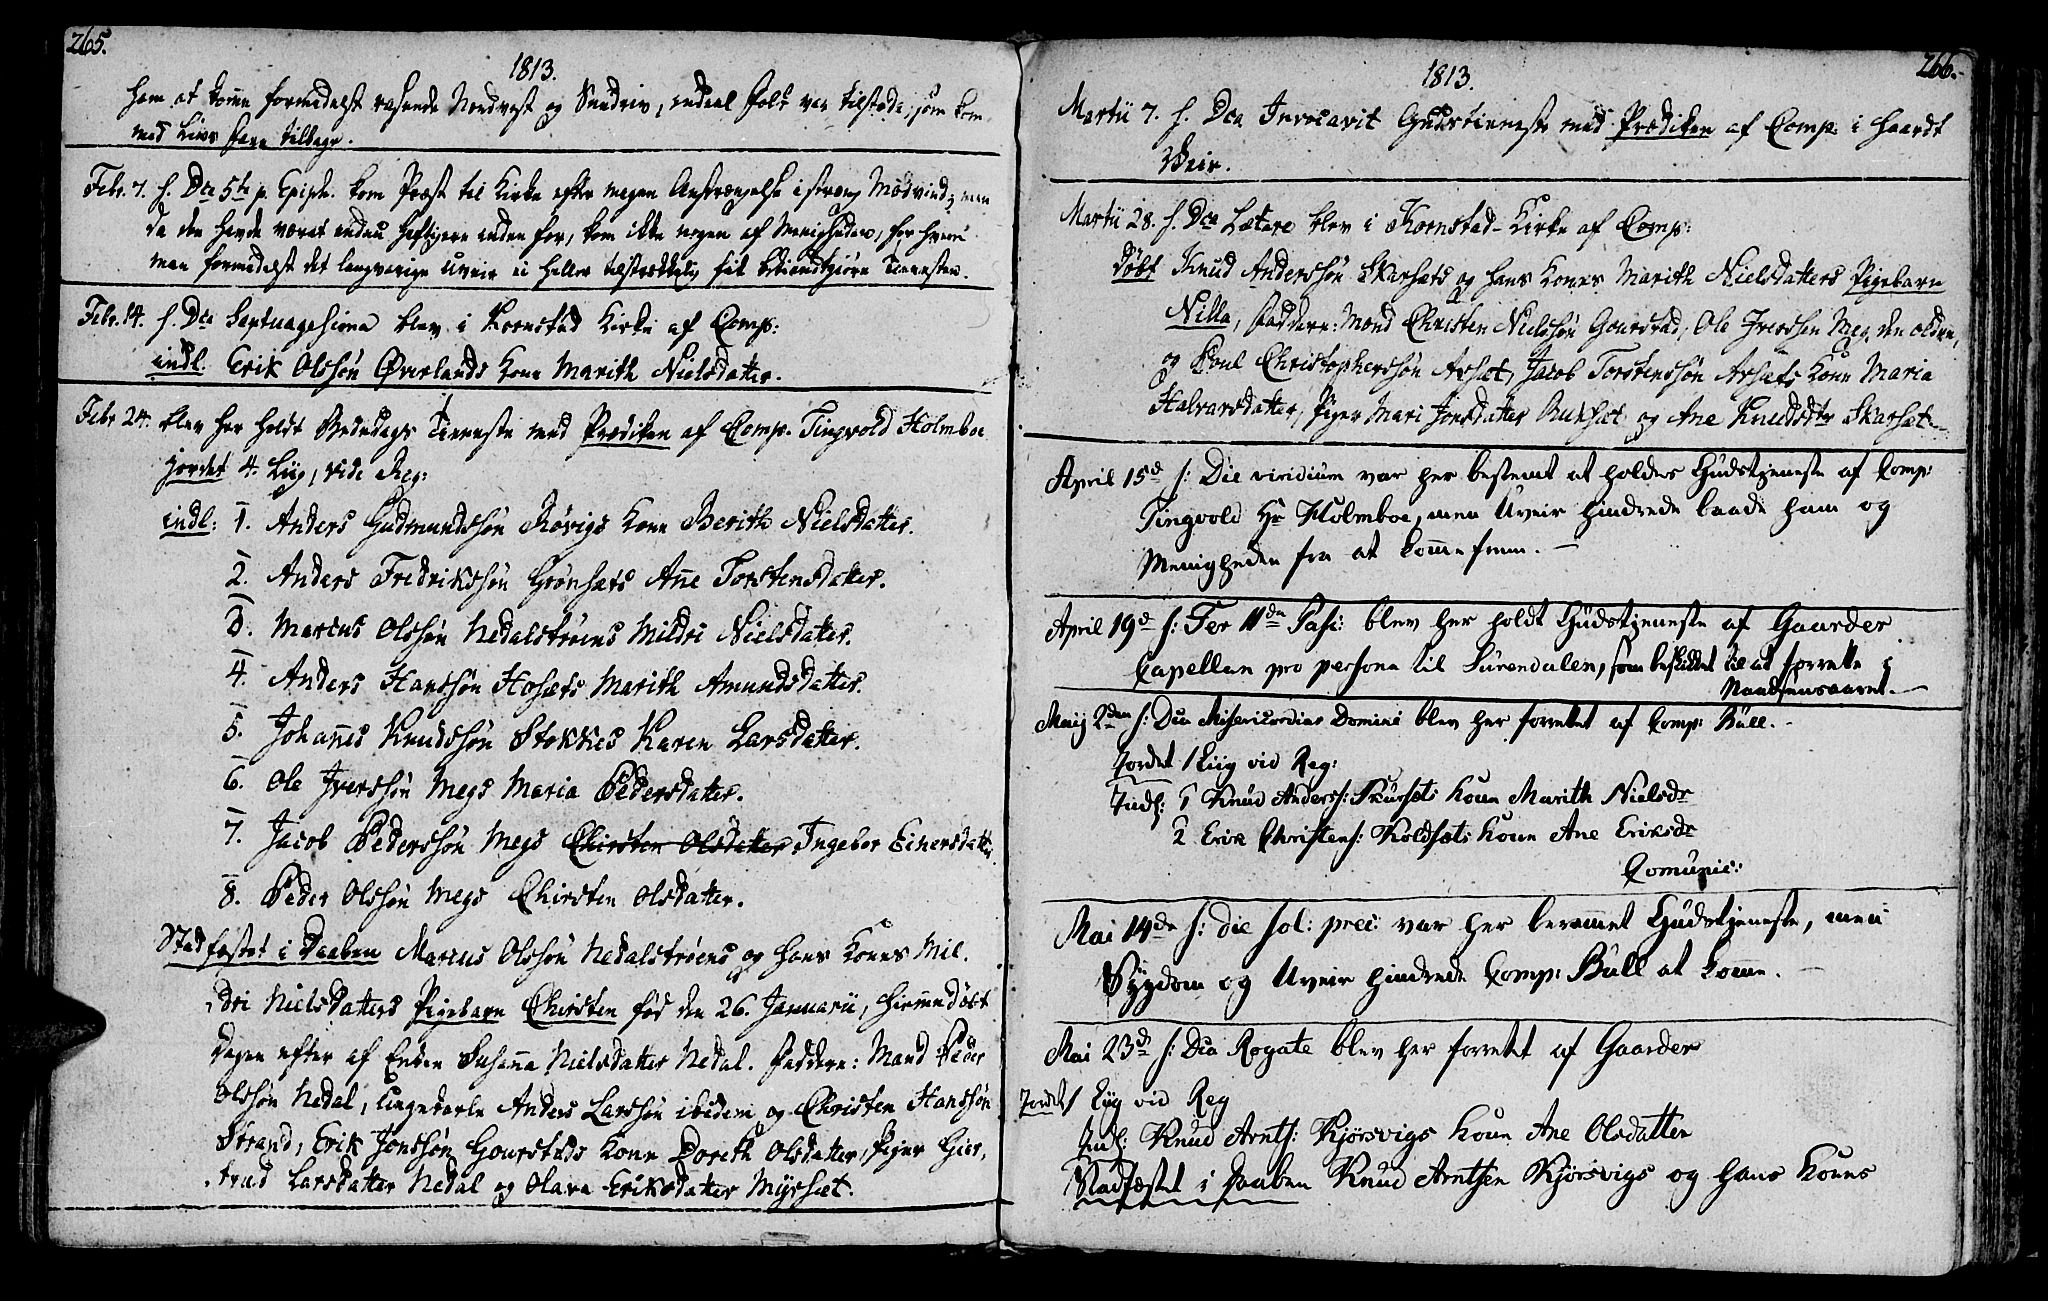 265.
1813.
ham at komme formedelst rasende Nordvest og Sneedriv, endeel Folk var tilstede, som kom
med Livs Fare tilbage.
Febr. 7. s. Dca 5te p. Epiph. kom Præst til Kirke efter megen Anstrængelse i stræng Modvind; men
da den havde været endnu heftigere inden for, kom ikke nogen af Menigheden, for hvem
man formedelst det langvarige Uveir ei heller tilstrækkelig fik bekiendtgjøre Tienesten.
Febr. 14. s. Dca Septuagesima blev i Kornstad Kirke af Comp:
indl. Erik Olssøn Øverlands Kone Marith Nielsdatter.
Febr 24. blev her holdt Bededags Tieneste med Prædiken af Comp. Tingvold Holmboe
jordet 4. Liig, vide Reg:
indl: 1. Anders Gudmundssøn Røvigs Kone Berith Nielsdatter.
2. Anders Fredrikssøn Grønsæts Ane Torstensdatter.
3. Marcus Olssøn Nedalstrøens Mildri Nielsdatter.
4. Anders Hanssøn Hosæts Marith Amundsdatter.
5. Johannes Knudssøn Stokkes Karen Larsdatter.
6. Ole Iverssøn Megs Maria Pedersdatter.
7. Jacob Pederssøn Megs Chirsten Olsdatter Ingebor Einersdatter
8. Peder Olssøn Megs Chirsten Olsdatter.
Stadfæstet i Daaben Marcus Olssøn Nedalstrøens og hans Kones Mil.
dri Nielsdatters Pigebarn Chirsten fød den 26. Januarii, hiemmedøbt
dagen efter af Enken Susanna Nielsdatter Nedal. Faddere: Mand Peder
Olssøn Nedal, Ungekarle Anders Larssøn ibidem og Christen Hanssøn
Strand, Erik Jonssøn Gourstads Kone Doreth Olsdatter, Piger Gier,
trud Larsdatter Nedal og Olava Eriksdatter Myrsæt.
266.
1813.
Martii 7. s. Dca Invocavit Gudstieneste med Prædiken af Comp. i haardt
Veir.
Martii 28. s. Dca Lætare blev i Kornstad-Kirke af Comp:
døbt Knud Anderssøn Skarsæts og hans Kones Marith Nielsdatters Pigebarn
Nilla, Faddere: Mænd Christen Nielssøn Gourstad, Ole Iverssøn Meg, den ældre,
og Poul Christopherssøn Aasæt, Jacob Torstenssøn Aasæts Kone Maria
Halvarsdatter, Piger Mari Jonsdatter Buksæt og Ane Knudsdtr Skarsæt.
April 15d s: Die viridium var her bestemt at holdes Gudstjeneste af Comp:
Tingvold Hr Holmboe, men Uveir hindrede baade ham og
Menigheden fra at komme frem. —
April 19d s: Fer IIda Pasc: blev her holdt Gudstjeneste af Gaarder
Capellan pro persona til Surendalen, som beskikket til at forrette i
Naadsensaaret. —
Maij 2den s: Dca Misericordias Domini blev her forrettet af Comp: Bull. -
Jordet 1 Liig vid Reg:
Indl: 1 Knud Anderss: Skarsæts Kone Marith Nielsdr
2 Erik Christens: Koldsæts Kone Ane Eriksdr
Comunic:
Mai 14de s: die sol: prec: var her berammet Gudstjeneste, men
Sygdom og Uveir hindrede Comp: Bull at komme. —
Mai 23d s: Dca Rogate blev her forrettet af Gaarder
Jordet 1 Liig vid Reg
Indl: Knud Arnts: Kjørsvigs Kone Ane Olsdatter
Stadfæstet i Daaben Knud Arntsen Kjørsvigs og hans Kones